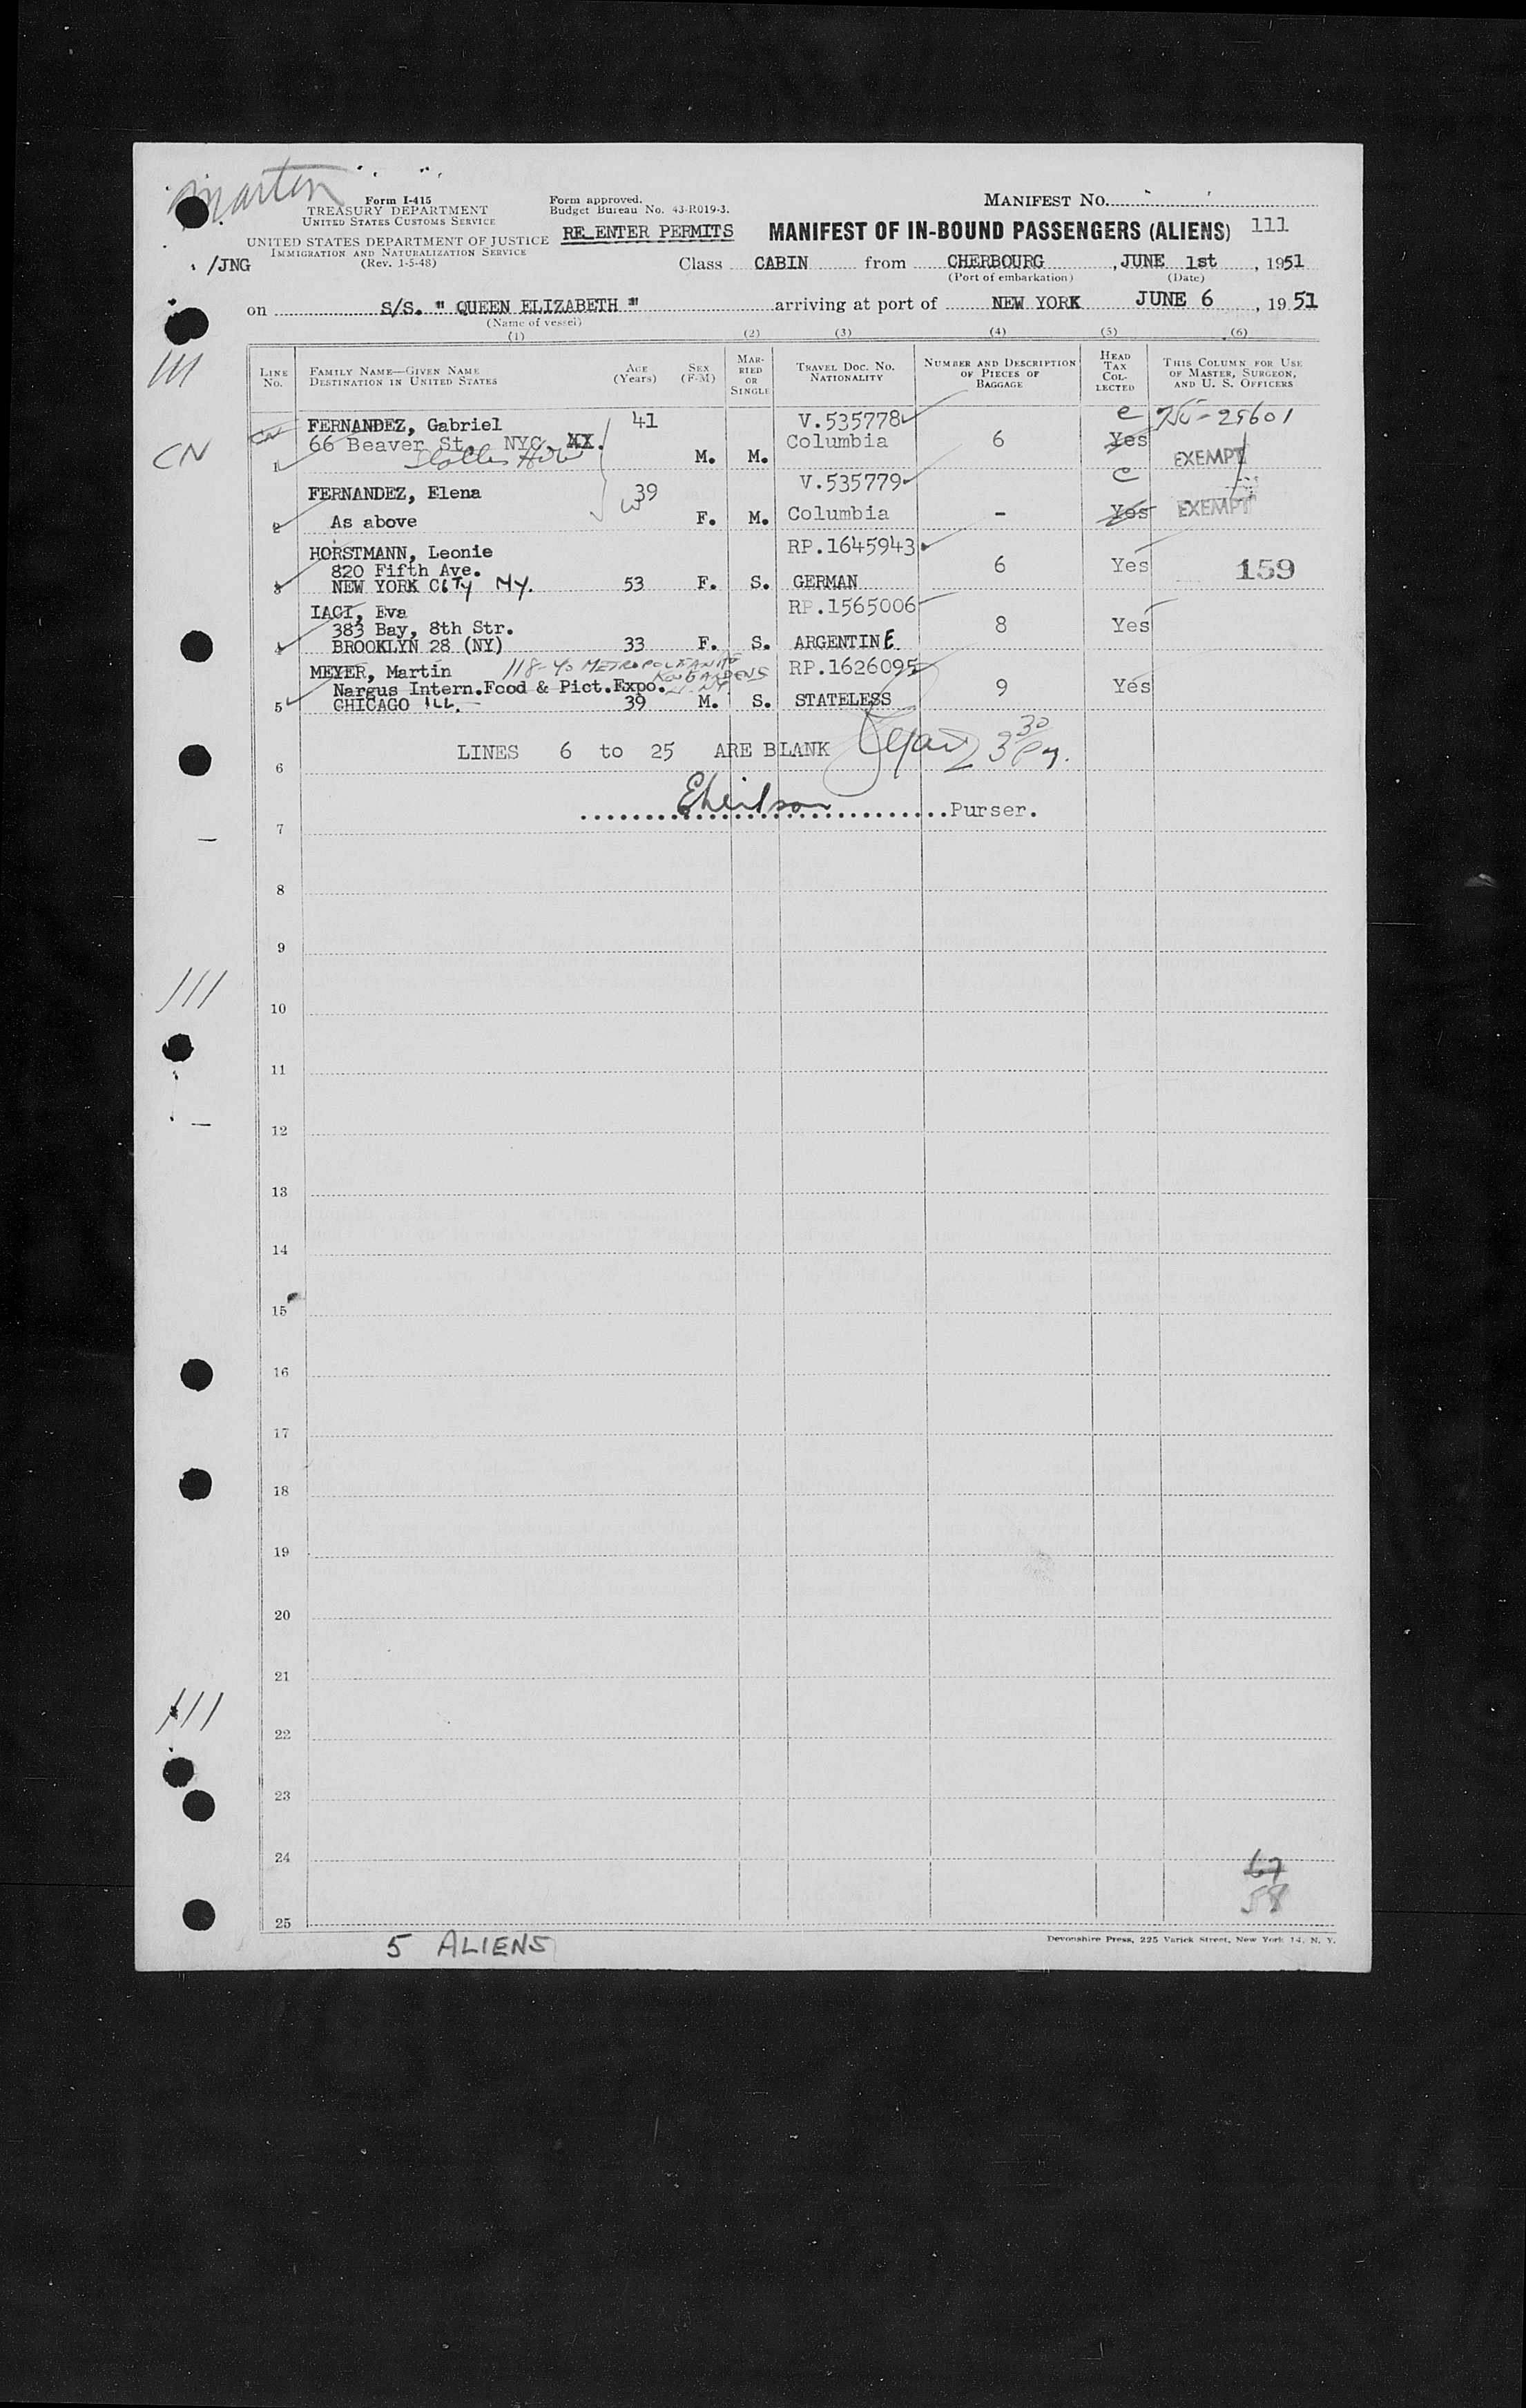 Martin
Form I-415
TREASURY DEPARTMENT
UNITED STATES CUSTOMS SERVICE
UNITED STATES DEPARTMENT OF JUSTICE
IMMIGRATION AND NATURALIZATION SERVICE
(Rev. 1-5-48)
/JNG
Form approved.
Budget Bureau No. 43-R019-3.
RE ENTER PERMITS
MANIFEST NO.
MANIFEST OF IN-BOUND PASSENGERS (ALIENS) 111
Class CABIN from CHERBOURG, JUNE 1st, 1951
(Port of embarkation) (Date)
on S/S. " QUEEN ELIZABETH " arriving at port of NEW YORK JUNE 6, 1951
(Name of vessel)
(1) (2) (3) (4) (5) (6)
LINE NO. FAMILY NAME—GIVEN NAME DESTINATION IN UNITED STATES AGE (Years) SEX (F-M) MARRIED OR SINGLE TRAVEL DOC. NO. NATIONALITY NUMBER AND DESCRIPTION OF PIECES OF BAGGAGE HEAD TAX COLLECTED THIS COLUMN FOR USE OF MASTER, SURGEON, AND U. S. OFFICERS
111
CN
FERNANDEZ, Gabriel 41 V.535778 e
66 Beaver St. NYC. Columbia 6 Yes
1 M. M. EXEMPT
FERNANDEZ, Elena 39 V.535779 C
2 As above F. M. Columbia - Yes EXEMPT
HORSTMANN, Leonie RP.1645943
820 Fifth Ave. 6 Yes 159
3 NEW YORK CITY NY. 53 F. S. GERMAN
IACI, Eva RP.1565006
383 Bay, 8th Str. 8 Yes
4 BROOKLYN 28 (NY) 33 F. S. ARGENTINE
MEYER, Martin 118-40 METROPOLITAN AVE RP.1626095
Nargus Intern.Food & Pict.Expo. KEW GARDENS 9 Yes
5 CHICAGO ILL. 39 M. S. STATELESS
LINES 6 to 25 ARE BLANK
6
Purser.
7
8
9
111
10
11
12
13
14
15
16
17
18
19
20
21
111
22
23
24
67
58
25
5 ALIENS
Devonshire Press, 225 Varick Street, New York 14, N. Y.